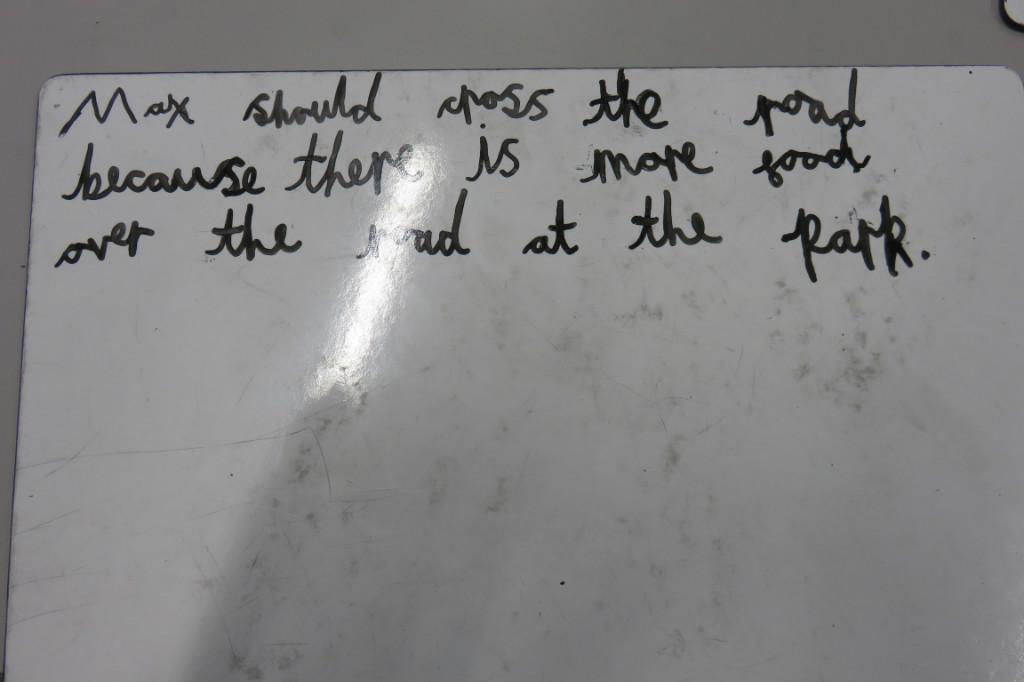 Max should cross the road
because there is more food
over the road at the park.